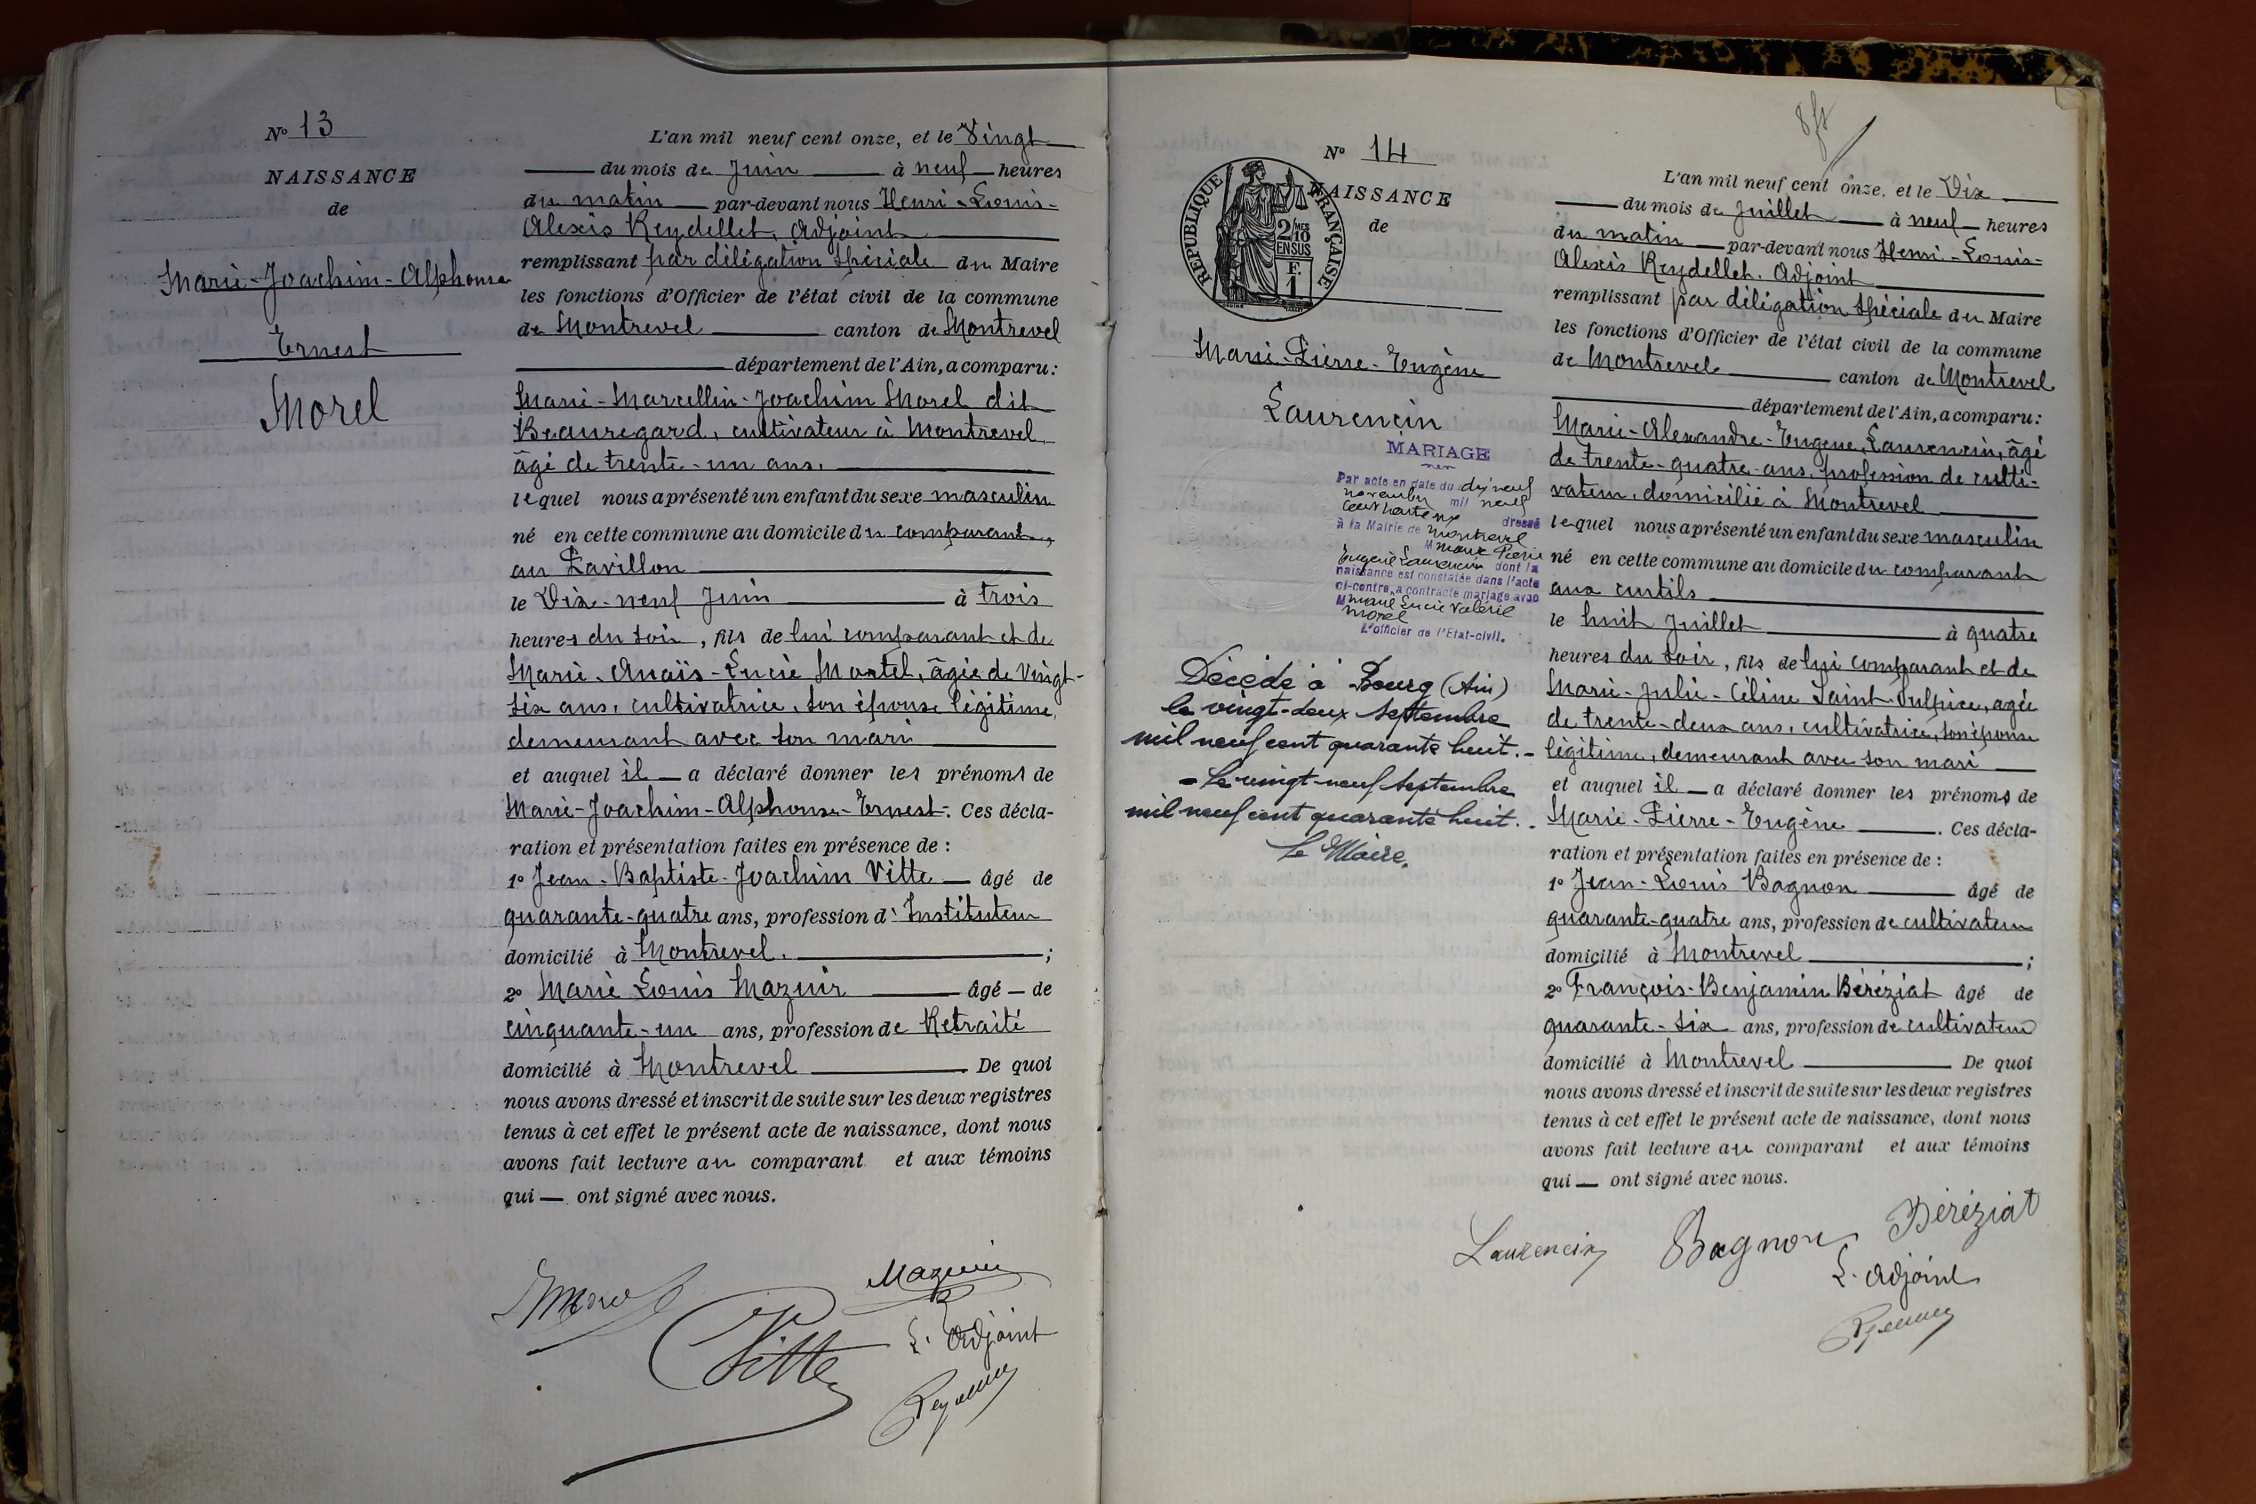 Nº 13
NAISSANCE
de
Marie-Joachim-Alphonse
Ernest
Morel
L'an mil neuf cent onze, et le Vingt
du mois de Juin à neuf heures
du matin par-devant nous Henri-Louis-
Alexis Reydellet, Adjoint
remplissant par délégation spéciale du Maire
les fonctions d'Officier de l'état civil de la commune
de Montrevel canton de Montrevel
département de l'Ain, a comparu:
Marie-Marcellin-Joachim Morel dit
Beauregard, cultivateur à Montrevel,
âgé de trente-un ans,
lequel nous a présenté un enfant du sexe masculin
né en cette commune au domicile du comparant,
au Pavillon
le Dix-neuf Juin à trois
heures du soir, fils de lui comparant et de
Marie-Anaïs-Lucie Montel, âgée de Vingt-
six ans, cultivatrice, son épouse légitime,
demeurant avec son mari
et auquel il a déclaré donner les prénoms de
Marie-Joachim-Alphonse-Ernest. Ces décla-
ration et présentation faites en présence de :
1º Jean-Baptiste-Joachim Vitte âgé de
quarante-quatre ans, profession d'Instituteur
domicilié à Montrevel. ;
2º Marie Louis Mazuir âgé de
cinquante-un ans, profession de Retraité
domicilié à Montrevel De quoi
nous avons dressé et inscrit de suite sur les deux registres
tenus à cet effet le présent acte de naissance, dont nous
avons fait lecture au comparant et aux témoins
qui ont signé avec nous.
Morel
Mazuir
Vitte
L'Adjoint
Nº 14
NAISSANCE
de
RÉPUBLIQUE FRANÇAISE
2/10 MES
EN SUS
F.
1
Marie-Pierre-Eugène
Laurencin
MARIAGE
Par acte en date du dix neuf
novembre mil neuf
cent dressé
à la Mairie de Montrevel
M Marie Pierre
Eugène Laurencin dont la
naissance est constatée dans l'acte
ci-contre, a contracté mariage avec
M Marie Lucie Valérie
Morel
L'officier de l'Etat-civil.
Décédé à Bourg (Ain)
le vingt-deux septembre
mil neuf cent quarante huit.-
- Le vingt-neuf septembre
mil neuf cent quarante huit.-
Le Maire,
L'an mil neuf cent onze, et le Dix
du mois de Juillet à neuf heures
du matin par-devant nous Henri-Louis-
Alexis Reydellet, Adjoint
remplissant par délégation spéciale du Maire
les fonctions d'Officier de l'état civil de la commune
de Montrevel canton de Montrevel
département de l'Ain, a comparu:
Marie-Alexandre-Eugène Laurencin, âgé
de trente-quatre ans, profession de culti-
vateur, domicilié à Montrevel
lequel nous a présenté un enfant du sexe masculin
né en cette commune au domicile du comparant
aux curtils
le huit Juillet à quatre
heures du soir, fils de lui comparant et de
Marie-Julie-Céline Saint-Sulpice, agée
de trente-deux ans, cultivatrice, son épouse
légitime, demeurant avec son mari
et auquel il a déclaré donner les prénoms de
Marie-Pierre-Eugène . Ces décla-
ration et présentation faites en présence de :
1º Jean-Louis Bagnon âgé de
quarante-quatre ans, profession de cultivateur
domicilié à Montrevel ;
2º François-Benjamin Béréziat âgé de
quarante-six ans, profession de cultivateur
domicilié à Montrevel De quoi
nous avons dressé et inscrit de suite sur les deux registres
tenus à cet effet le présent acte de naissance, dont nous
avons fait lecture au comparant et aux témoins
qui ont signé avec nous.
Laurencin Bagnon Béréziat
L'Adjoint